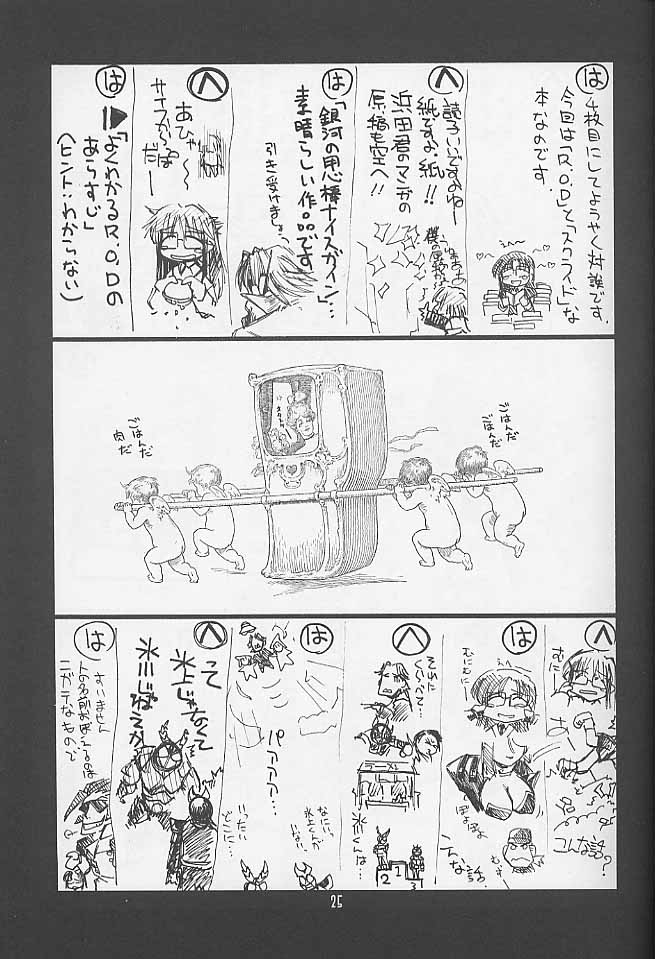 は
4枚目にしてようやく対談です。
今回は「R.O.D」と「スクライド」な
本なのです。
へ
読子いいですよねー
紙ですよ、紙!!
浜田君のマンガの
原稿も空へ!!
は
「銀河の用心棒ナイスガイン」…
素晴らしい作品です
引き受けましょう
へ
あひゃ〜
は
「よくわかるR.O.Dの
あらすじ」
(ヒント:わからない)
ごはんだ
ごはんだ
ごはんだ
肉だ
へ
むに
こんな話?
は
むにむにー
ぽよぽよ
こんな話。
へ
それに
くらべて…
氷川くんは…
2
1
3
は
パァァァ…
なにい、
氷上くんが
いない
いったい
どこに…
へ
って
氷上じゃなくて
氷川じねえか
は
すいません
人の名前おぼえるのは
ニガテなもので
25